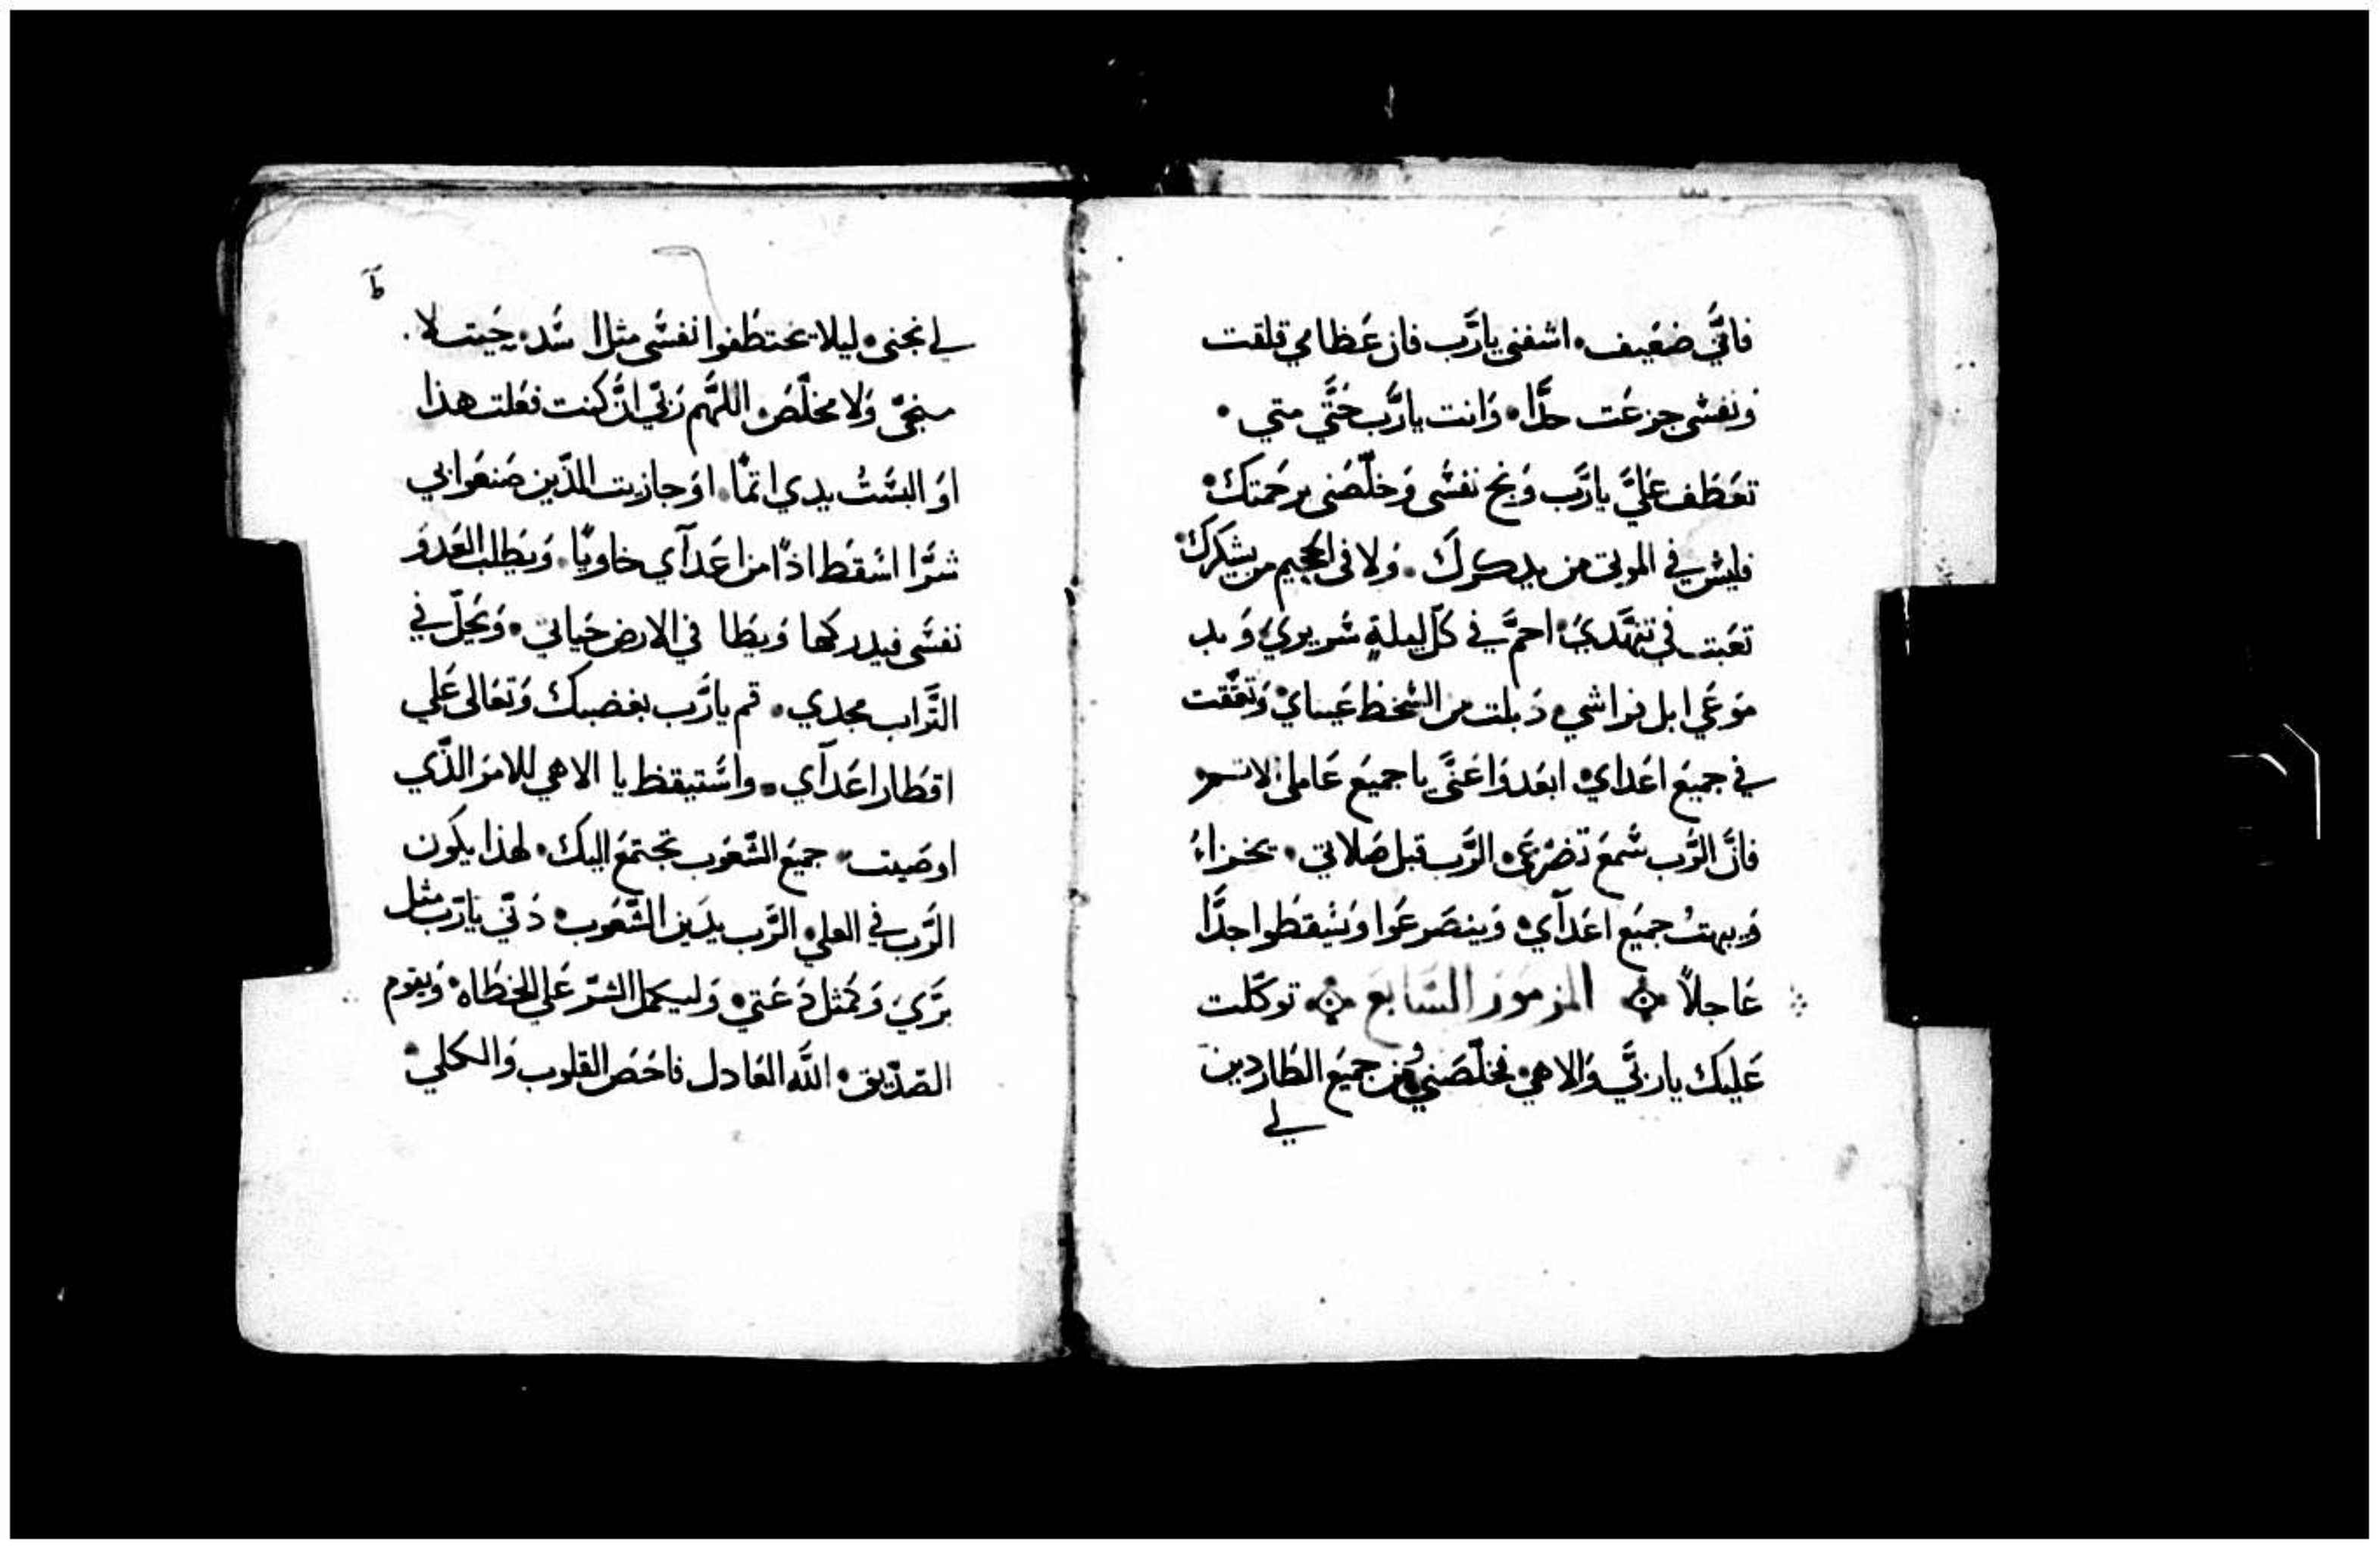 فانّي ضعيف. اشفني يا رَّب فان عظامي قلقت
ونفسى جزعت جدًّا. وَانت يا رَّب حَتَّي متي.
تعَطَف عَليَّ يا رَّب وَنج نفسى وَخلّصنى برحمتك.
فليس في الموتى من يدكرك. وَلا فى الجحيم من يشكرك.
تعبت في تنهّدي. احمّ في كلّ ليلةٍ سريري وَبد
موعَي ابل فراشي. دَبلت من السخط عَيناي. وَتعتّقت
في جميع اعَداي. ابعَدوَاعَنَّي يا جميع عَاملى الاتم
فانَّ الرَّب سمعَ تضرعَى. الرَّب قبل صلاتي. يخزاءُ
وَيبهتُ جميع اعَدآي. وَينصَرعَوا وَيسقطوا جدًّا
عَاجلاً المزمور السَّابع توكّلت
عَليك يا ربَّي وَالاهي. فخلّصَني من جميع الطاردين
لي
ط
لي نجنى. ليلا يختطفوا نفسى مثل اسَد. حَيت لا
منجىّ وَلا مخلّص. اللّهَم رَبّي انَّ كنت فعَلت هذا
اوَ البسَتُ يدي اتمًا. اوَ جازيت الدّين صَنعَوا بي
شرًّا اسَقط اذًا من اعَدآي خاويًا. وَيطلب العَدوَ
نفسَى فيدركها وَيطا في الارض حَياتي. وَيحلّ في
التَّراب مجدي. قم يا رَّب بغضبك وَتعَالى عَلي
اقطار اعَدآي. واسَتيقظ يا الاهي للامرَ الذّي
اوصَيت. جميع الشّعَوب تجتمع اليك. لهذا يكون
الرَّب في العلي. الرَّب يدَين الشَّعَوب. دَنّي يا رّب مثل
برَّيَ وَكمَثل دَعَتي. وَليكمل الشرّ عَلي الخطاه. وَيقوم
الصّدّيق. اللّه العَادل فاحَص القلوب وَالكلي.